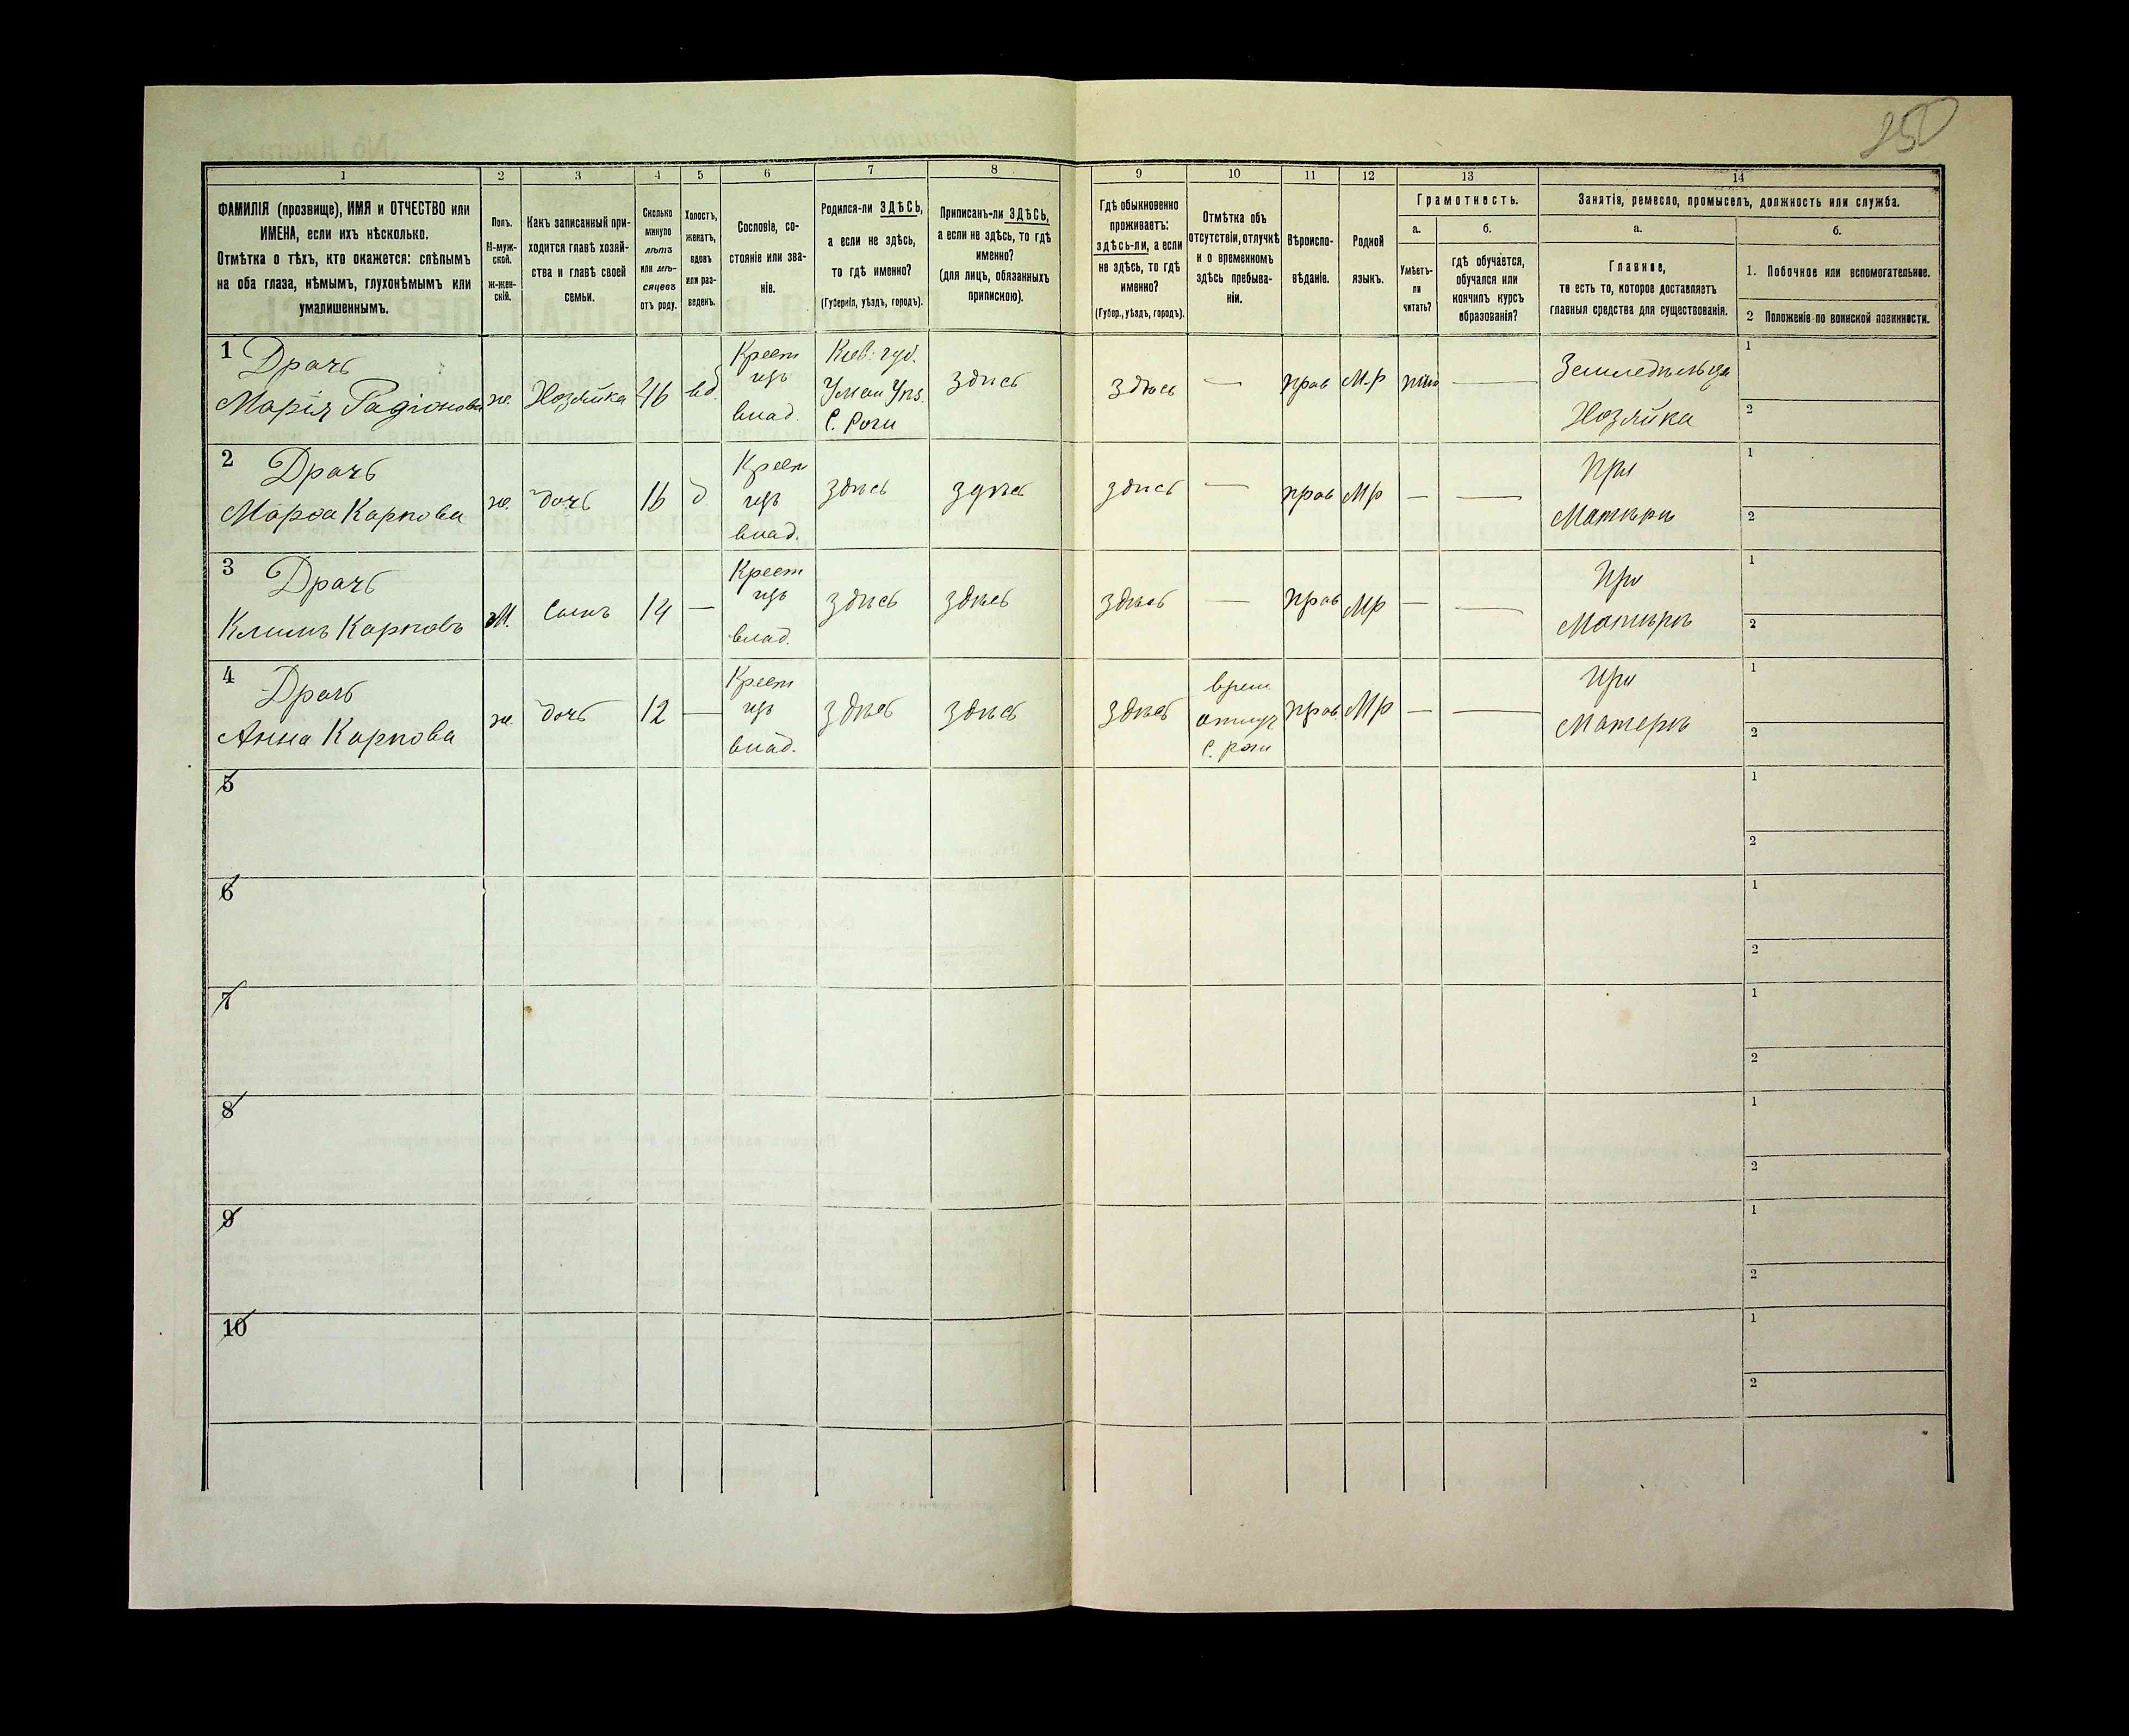 250
1
ФАМИЛІЯ (прозвище), ИМЯ и ОТЧЕСТВО или
ИМЕНА, если ихъ нѣсколько.
Отмѣтка о тѣхъ, кто окажется: слѣпымъ
на оба глаза, нѣмымъ, глухонѣмымъ или
умалишеннымъ.
2
Полъ.
М-муж-
ской.
Ж-жен-
скій.
3
Какъ записанный при-
ходится главѣ хозяй-
ства и главѣ своей
семьи.
4
Сколько
минуло
лѣтъ
или мѣ-
сяцевъ
отъ роду.
5
Холостъ,
женатъ,
вдовъ
или раз-
веденъ.
6
Сословіе, со-
стояніе или зва-
ніе.
7
Родился-ли ЗДѢСЬ,
а если не здѣсь,
то гдѣ именно?
(Губернія, уѣздъ, городъ).
8
Приписанъ-ли ЗДѢСЬ,
а если не здѣсь, то гдѣ
именно?
(для лицъ, обязанныхъ
припискою).
9
Гдѣ обыкновенно
проживаетъ:
здѣсь-ли, а если
не здѣсь, то гдѣ
именно?
(Губер., уѣздъ, городъ).
10
Отмѣтка объ
отсутствіи, отлучкѣ
и о временномъ
здѣсь пребыва-
ніи.
11
Вѣроиспо-
вѣданіе.
12
Родной
языкъ.
13
Грамотность.
а.
Умѣетъ-
ли
читать?
б.
гдѣ обучается,
обучался или
кончилъ курсъ
образованія?
14
Занятіе, ремесло, промыселъ, должность или служба.
а.
Главное,
то есть то, которое доставляетъ
главныя средства для существованія.
б.
1. Побочное или вспомогательное.
2 Положеніе по воинской повинности.
1
Драчъ
Марія Радіонова
ж.
Хозяйка
46
вд.
Крест
изъ
влад.
Кіев: губ.
Уман Уѣз.
С. Роги
здѣсь
здѣсь
—
прав
М-р
—
Земледѣльца
Хозяйка
1
2
2
Драчъ
Марѳа Карпова
ж.
дочь
16
д
Крест
изъ
влад.
здѣсь
здѣсь
здѣсь
—
прав
Мр
—
—
При
Матѣрѣ
1
2
3
Драчъ
Климъ Карповъ
М.
Сынъ
14
—
Крест
изъ
влад.
здѣсь
здѣсь
здѣсь
—
прав
Мр
—
—
При
Матѣрѣ
1
2
4
Драчъ
Анна Карпова
ж.
дочь
12
—
Крест
изъ
влад.
здѣсь
здѣсь
здѣсь
врем.
отлуч
С. роги
прав
Мр
—
—
При
Матерѣ
1
2
5
1
2
6
1
2
7
1
2
8
1
2
9
1
2
10
1
2